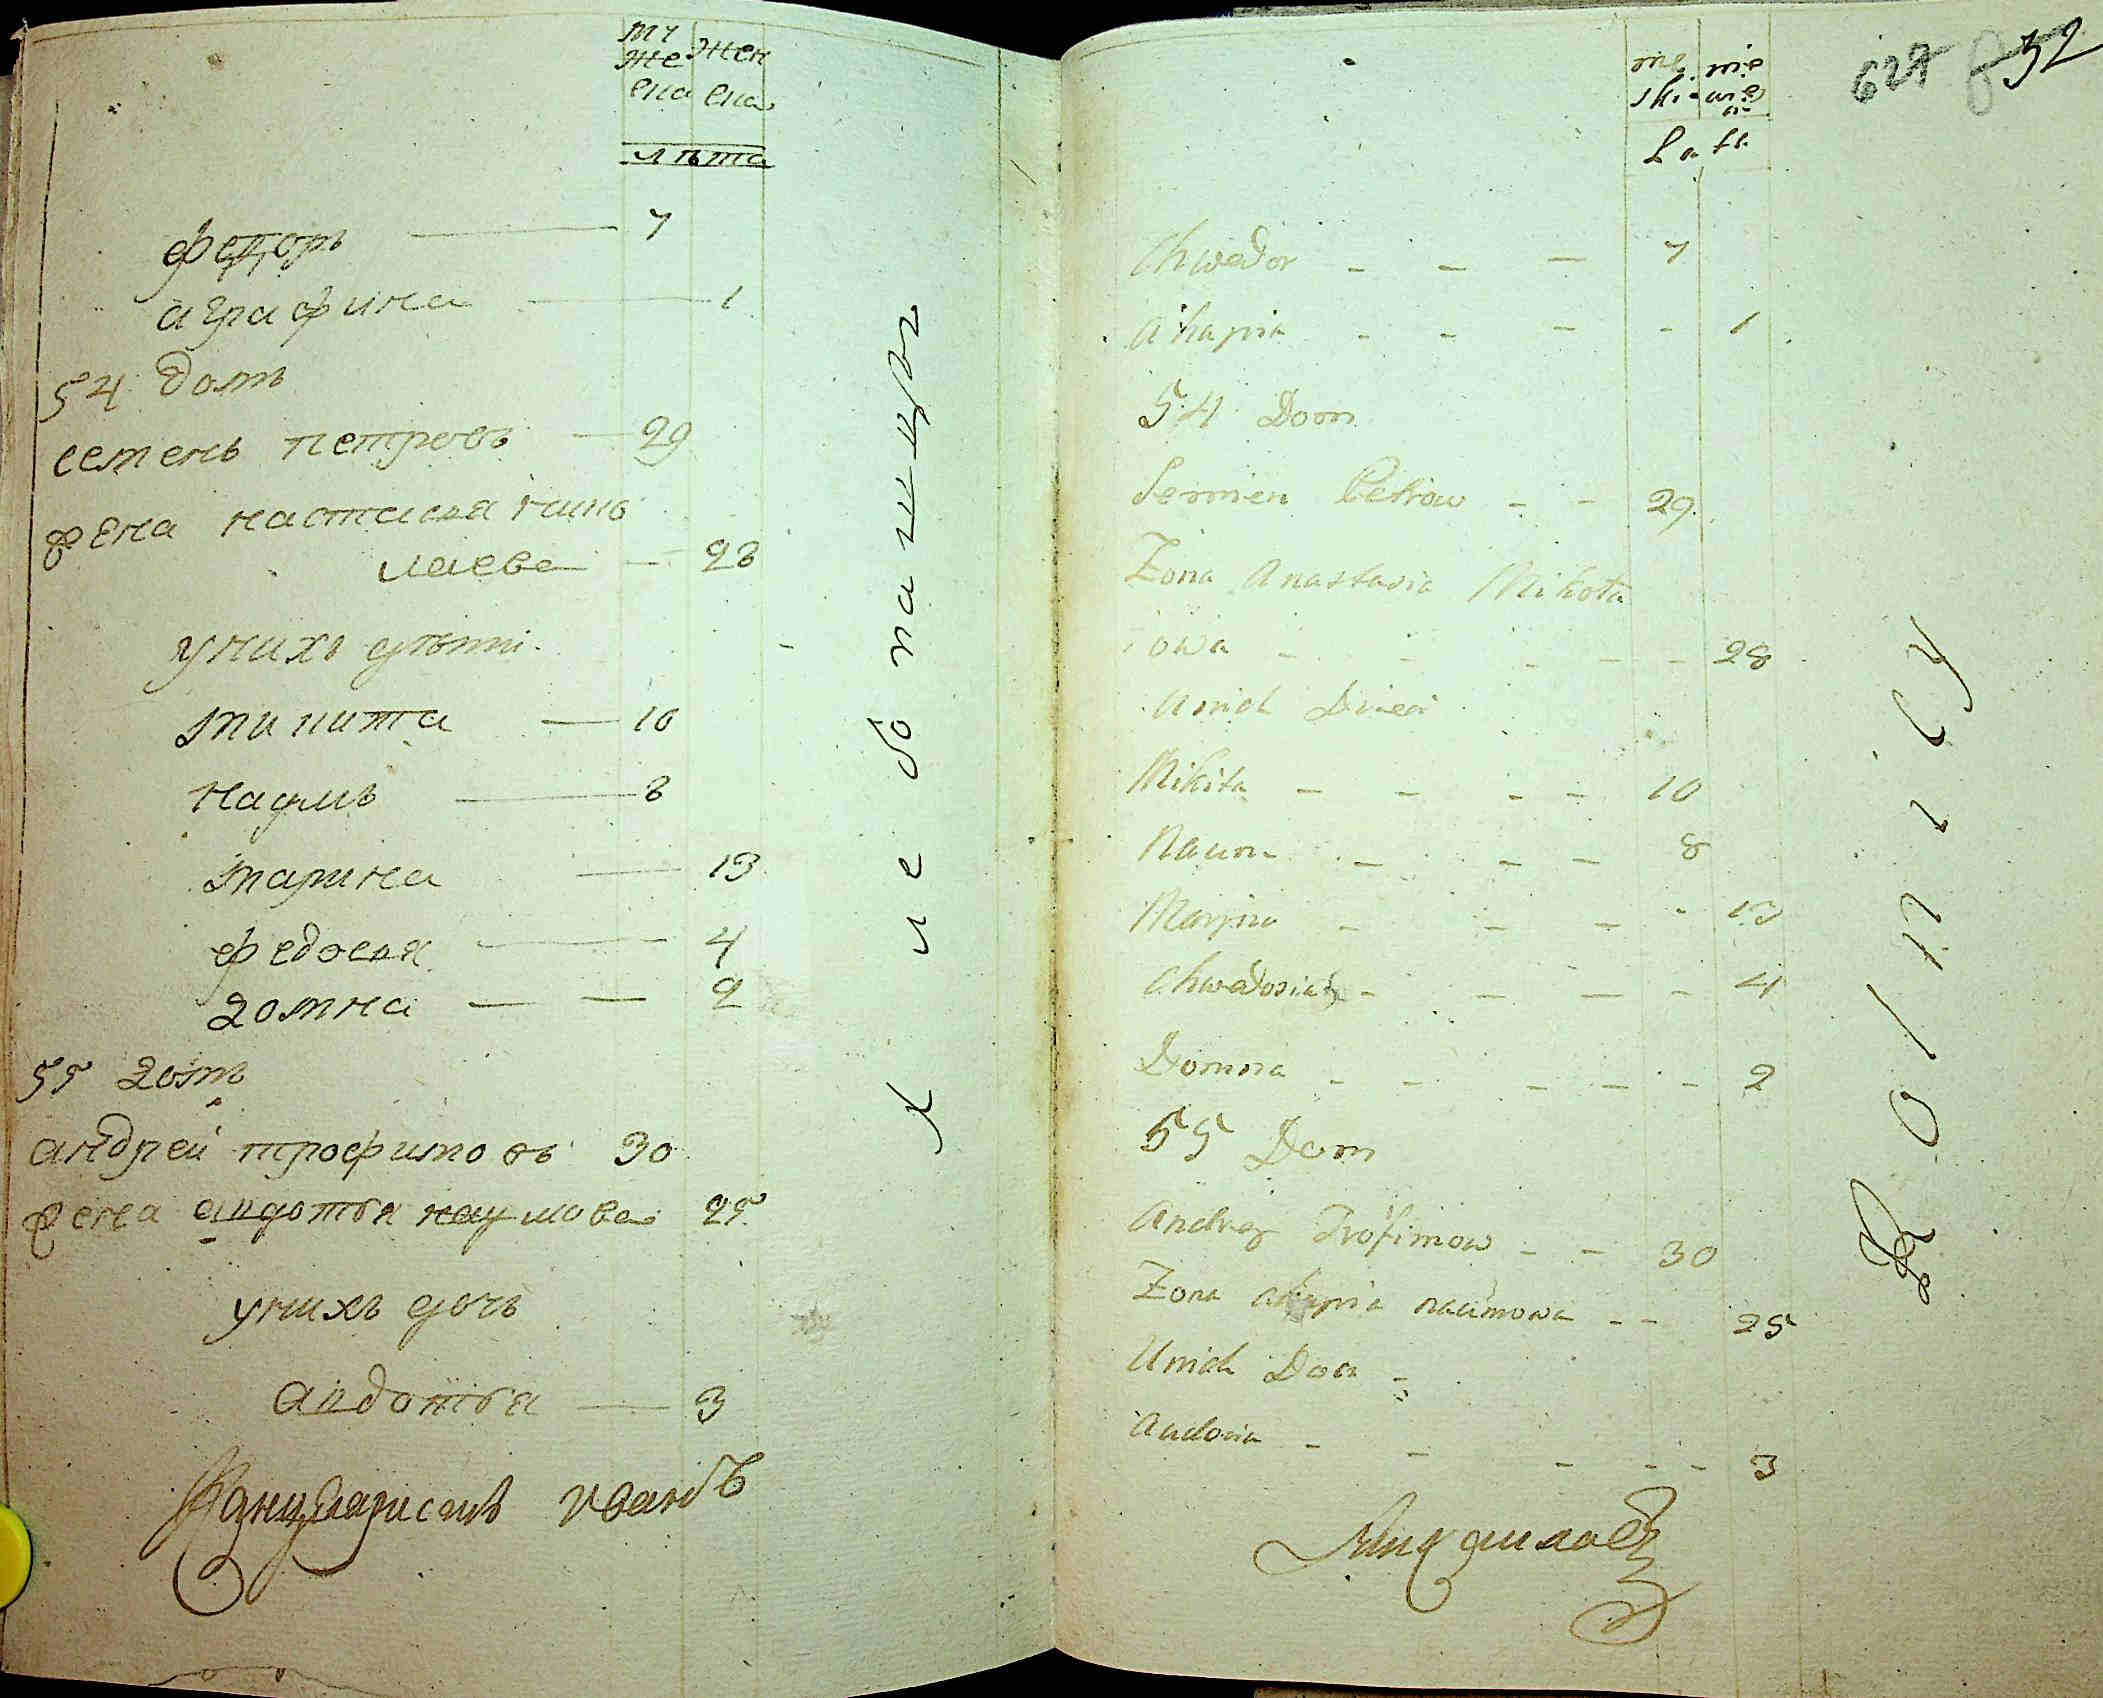 му жен
же ска
ска
лѣта
федоръ 7
аграфина 1
54 домъ
семенъ петровъ 29
жена настасья нико
лаева 28
у них дѣти
микита 10
наумъ 8
марина 13
федосья 4
домна 2
55 домъ
андрей трофимовъ 30
жена авдотья наумова 25
у нихъ дочь
авдотья 3
Канцеляристъ Иванъ
хлебопашцы
627 32
Lata
Chwedor - - - 7
Ahapia - - - - 1
54 Dom
Siemien Petrow - - 29
Zona Anastasia Mikoła
iowa - - - - - 28
U nich Dzieci
Mikita - - - - 10
Naum - - - 8
Maryna - - - - 13
Chwedosia - - - - 4
Domna - - - - - 2
55 Dom
Andrey Trofimow - - 30
Zona Naumowa - - 25
U nich
Audocia - - - - - 3
Rolnicy